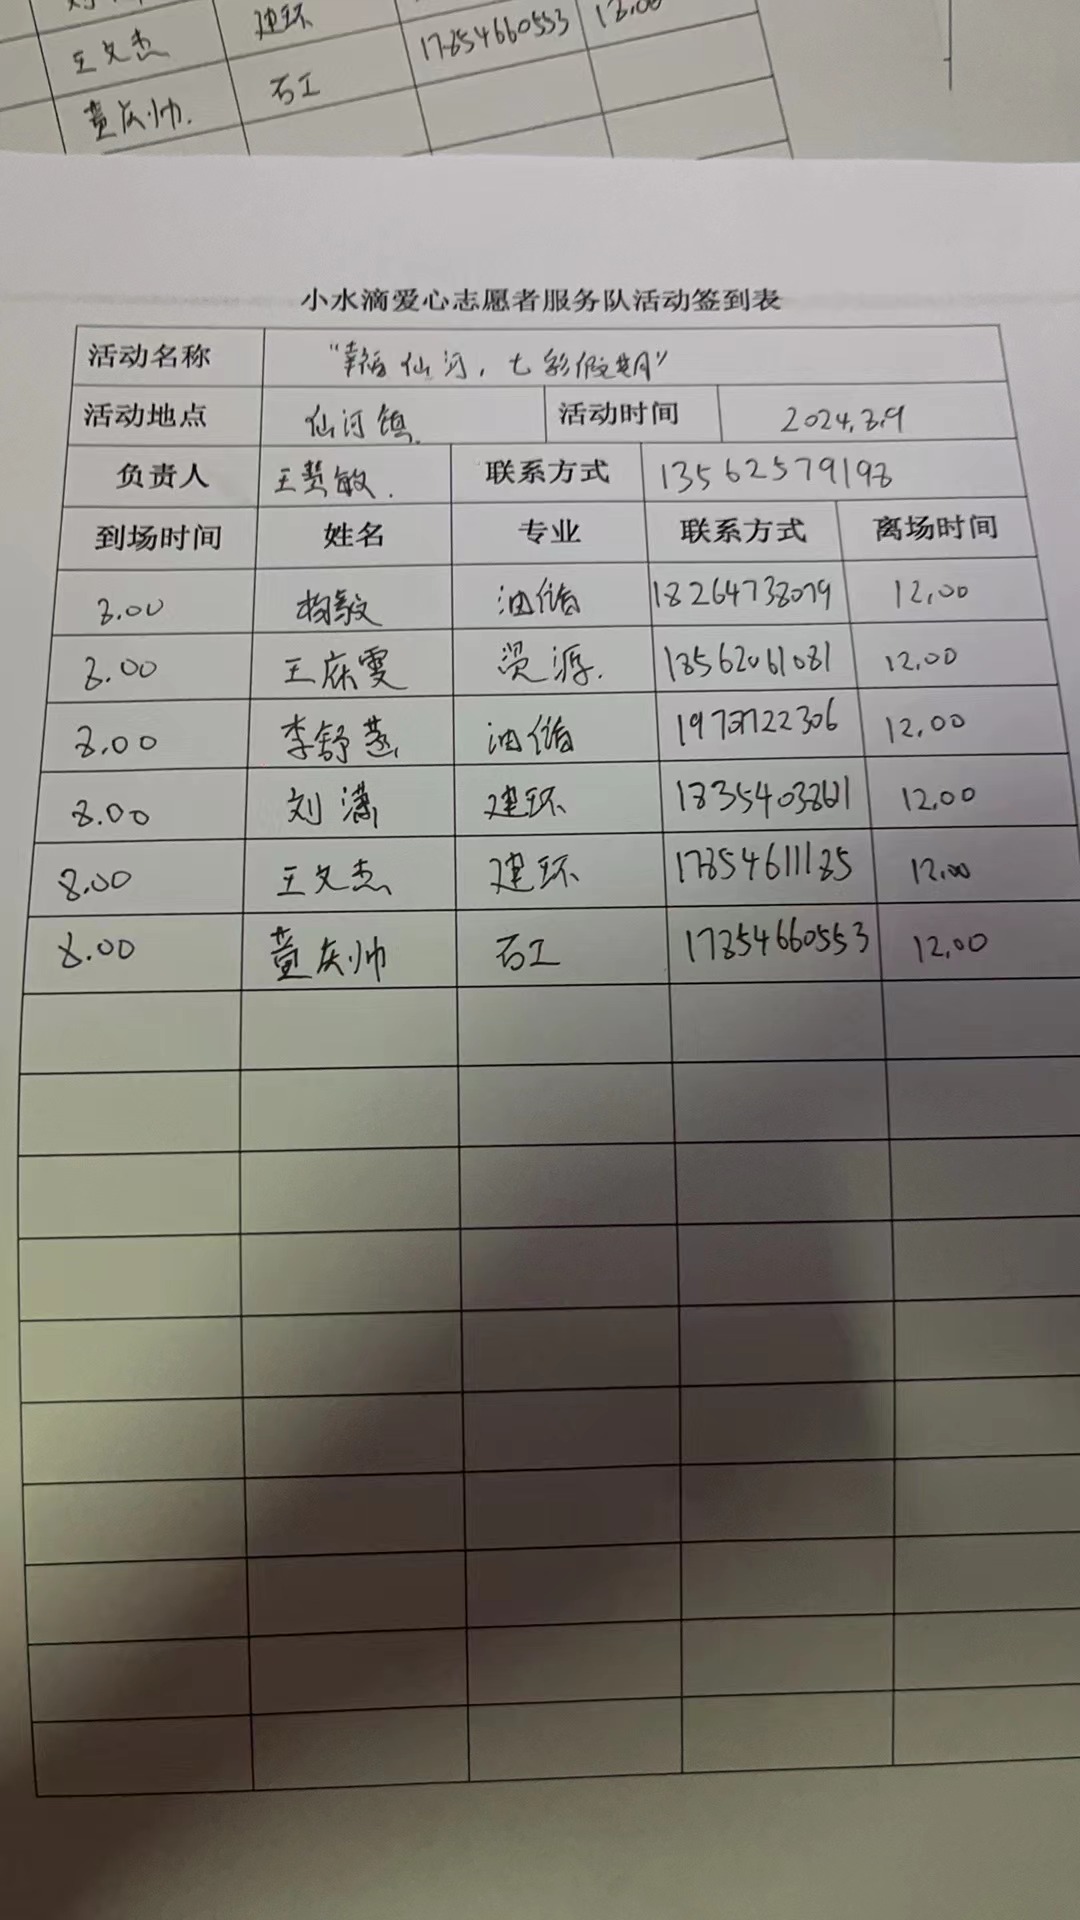 王文杰 建环 17854660553 18.00
董庆帅. 石工
小水滴爱心志愿者服务队活动签到表
活动名称 “幸福仙河，七彩假期”
活动地点 仙河镇. 活动时间 2024.8.9
负责人 王慧敏. 联系方式 13562579198
到场时间 姓名 专业 联系方式 离场时间
8.00 杨毅 油储 18264738079 12.00
8.00 王庆雯 资源. 18562061081 12.00
8.00 李舒燕 油储 12.00
8.00 刘潇 建环 12.00
8.00 王文杰 建环 17854611185 12.00
8.00 董庆帅 石工 17854660553 12.00